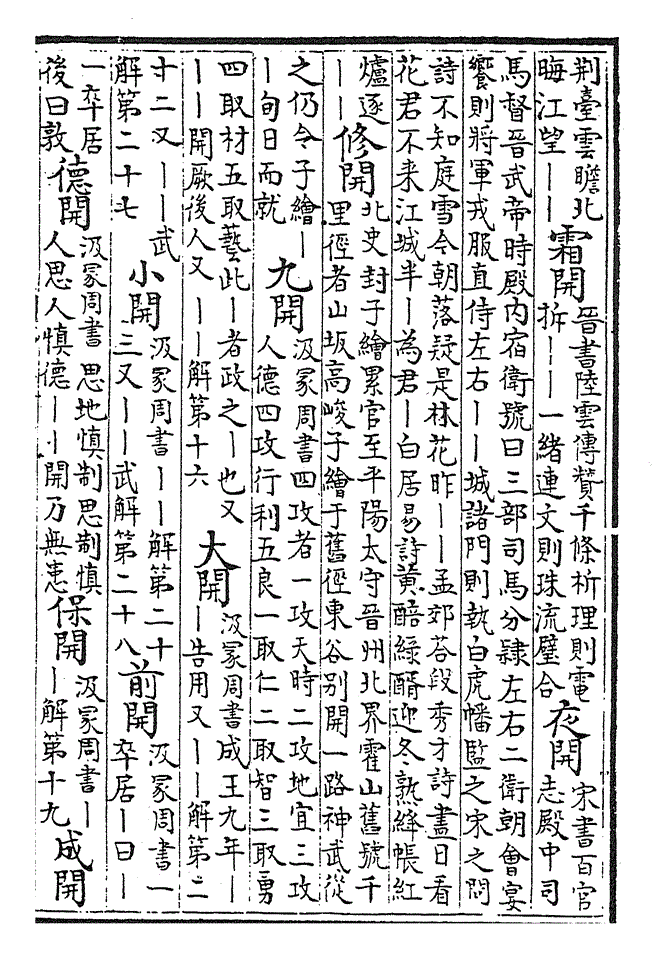 荆臺雲瞻北
晦江望｜｜
霜開
晉書陸雲傳贊千條析理則電
拆｜｜｜一緒連文則珠流璧合
夜開
宋書百官
志殿中司
馬督晉武帝時殿内宿衛號曰三部司馬分隸左右二衛朝會宴
饗則將軍戎服直侍左右｜｜城諸門則執白虎幡監之宋之問
詩不知庭雪今朝落疑是林花昨｜｜孟郊荅段秀才詩晝日看
花君不来江城半｜為君｜白居易詩黄醅緑醑迎冬熟絳帳紅
爐逐｜｜
｜｜
修開
北史封子繪累官至平陽太守晉州北界霍山舊號千
里徑者山坂高峻子繪于舊徑東谷别開一路神武從
之仍令子繪｜
｜旬日而就
九開
汲冢周書四攻者一攻天時二攻地宜三攻
人德四攻行利五良一取仁二取智三取勇
四取材五取藝此｜者政之｜也又
｜｜開厥後人又｜｜解第十六
大開
汲冢周書成王九年｜
｜告用又｜｜解第二
十二又｜｜武
解第二十七
小開
汲冢周書｜｜解第二十
三又｜｜武解第二十八
前開
汲冢周書一
卒居｜曰｜
一卒居
後曰敦
德開
汲冢周書思地慎制思制慎
人思人慎德｜｜開乃無患
保開
汲冢周書｜
｜解第十九
成開